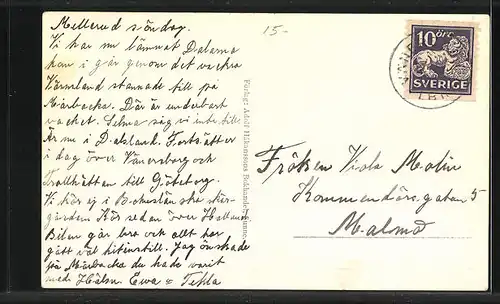 Mellerud söndag.
Vi har nu lämnat Dalarna
kom i går genom det vackra
Värmland stannade till på
Mårbacka. Där är underbart
vackert. Selma såg vi inte till.
Är nu i Dalsland. Fortsätter
i dag över Vänersborg och
Trollhättan till Göteborg.
Vi kör ej i Bohuslänska skär-
gården. Kör sedan över Halland
Bilen går bra och allt har
gått väl hitintill. Jag önskade
på Mårbacka du hade varit
med. Hälsn. Ewa = Tekla
15-
Förlag: Adolf Håkanssons Bokhandel,
10 ÖRE
SVERIGE
Fröken Viola Molin
Kommendörsgatan 5
Malmö